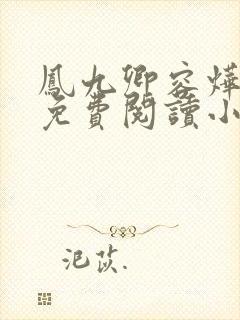 鳳九卿容燁
免費閱讀小
氾茨.